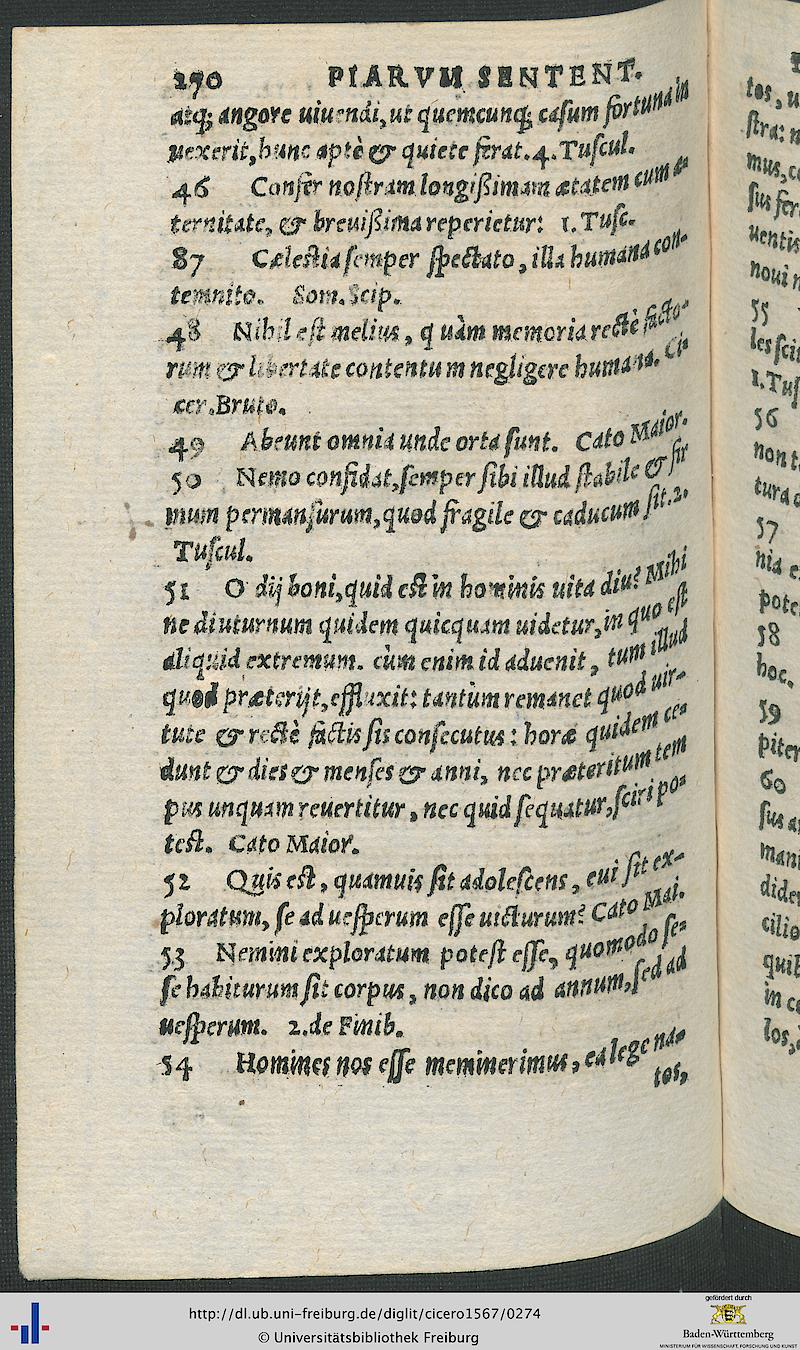 270 PIARVM SENTENT.
atq; angore uiuendi, ut quemcunq; casum fortuna in
uexerit, hunc aptè & quiete ferat. 4. Tuscul.
46 Confer nostram longißimam ætatem cum æ-
ternitate, & breuißima reperietur: 1. Tusc.
87 Cælestia semper spectato, illa humana con-
temnito. Som. Scip.
48 Nihil est melius, q uàm memoria rectè facto-
rum & libertate contentum negligere humana. Ci-
cer. Bruto.
49 Abeunt omnia unde orta sunt. Cato Maior.
50 Nemo confidat, semper sibi illud stabile & fir
mum permansurum, quod fragile & caducum sit. 2.
Tuscul.
51 O dij boni, quid est in hominis uita diu? Mihi
ne diuturnum quidem quicquam uidetur, in quo est
aliquid extremum. cùm enim id aduenit, tum illud
quod præterijt, effluxit: tantùm remanet quod uir-
tute & rectè factis sis consecutus: horæ quidem ce-
dunt & dies & menses & anni, nec præteritum tem
pus unquam reuertitur, nec quid sequatur, sciri po-
test. Cato Maior.
52 Quis est, quamuis sit adolescens, cui sit ex-
ploratum, se ad uesperum esse uicturum? Cato Mai.
53 Nemini exploratum potest esse, quomodo se-
se habiturum sit corpus, non dico ad annum, sed ad
uesperum. 2. de Finib.
54 Homines nos esse meminerimus, ea lege na-
tos,
tos, u
stra: n
mus, c
sus fer
uentis
noui n
55
les sci
1. Tus
56
non t
tura
57
nia e
pote
58
hoc.
59
piter
60
sus a
mani
dider
cilio
quib
in c
los,
http://dl.ub.uni-freiburg.de/diglit/cicero1567/0274
© Universitätsbibliothek Freiburg
gefördert durch
Baden-Württemberg
MINISTERIUM FÜR WISSENSCHAFT, FORSCHUNG UND KUNST